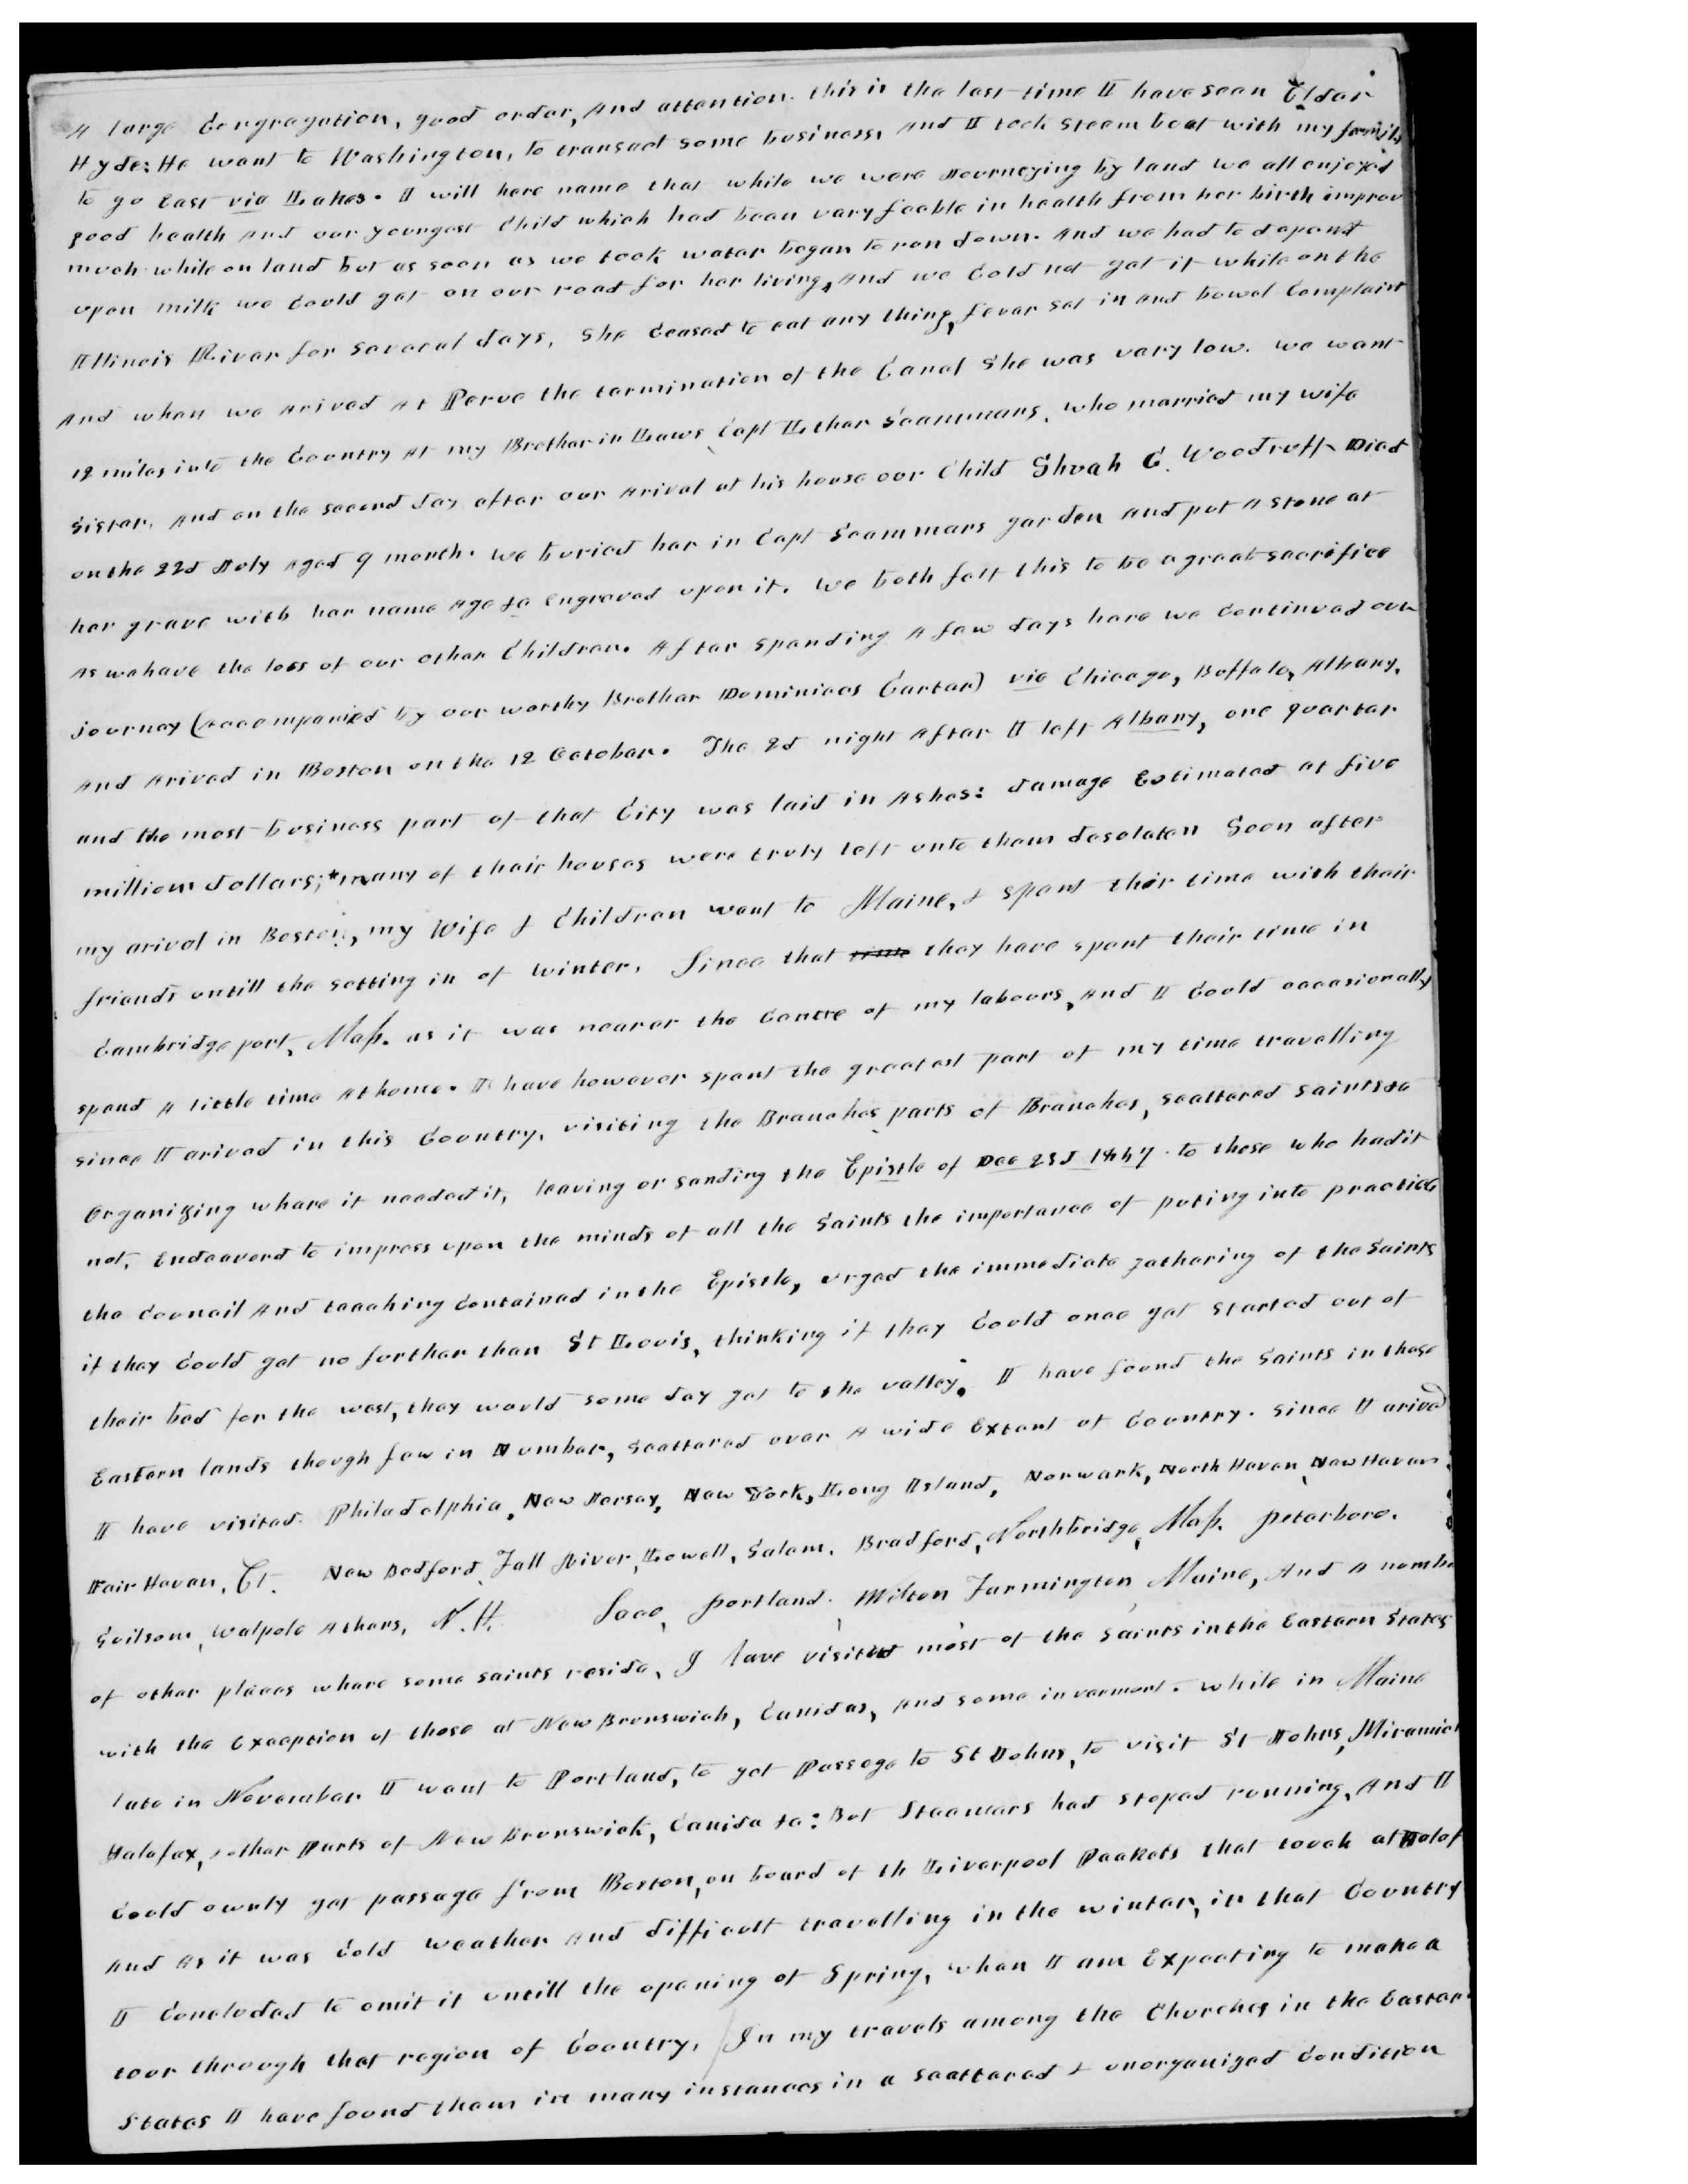 A large Congregation, good order, And attention. this is the last time I have seen Elder
Hyde: He went to Washington, to transact some business, And I took steem boat with my family
to go East via Lakes. I will here name that while we were Journeying by land we all enjoyed
good health And our youngest Child which had been very feeble in health from her birth improv
much while on land but as soon as we took water began to run down. And we had to depend
upon milk we Could get on our road for her living, And we Cold not get it while on the
Illinois River for several days. She Ceased to eat any thing, fever set in And bowel Complaint
And when we Arived At Peru the termination of the Canal She was very low. we went
12 miles into the Country At my Brother in Laws Capt Luther Scammans, who married my wife
Sister, And on the second day after our Arival at his house our Child Shuah C. Woodruff Died
on the 22d July Aged 9 month. we buried her in Capt Scammars garden and put A stone at
her grave with her name Age &c engraved upon it. We both felt this to be a great sacrifice
As we have the loss of our other Children. After spending A few days here we Continued our
journey (Accompanied by our worthy Brother Dominicos Carter) via Chicago, Buffalo, Albany,
And Arived in Boston on the 12 October. The 2d night After I left Albany, one quarter
and the most business part of that City was laid in Ashes: damage Estimated at five
million dollars; *many of their houses were truly left unto them desolaten Soon after
my arival in Boston, my Wife & Children went to Maine, & spent their time with their
friends untill the setting in of winter. Since that time they have spent their time in
Cambridge port, Mass. as it was nearer the Centre of my labours, And I Could occasionally
spend A little time At home. I have however spent the greatest part of my time travelling
since I arived in this Country, visiting the Branches parts of Branches, scattered saints &c
Organizing where it needed it, leaving or sending the Epistle of Dec 23d 1847 to those who had it
not, Endeavord to impress upon the minds of all the Saints the importance of puting into practice
the Council And teaching Contained in the Epistle, urged the immediate gathering of the Saints
if they Could get no further than St Louis, thinking if they Could once get started out of
their bed for the west, they would some day get to the valley. I have found the Saints in these
Eastern lands though few in Number, scattered over A wide Extent of Country. Since I arived
I have visited Philadelphia, New Jersey, New York, Long Island, Norwark, North Haven, New Haven
Fair Haven, Ct. New Bedford, Fall River, Lowell, Salem, Bradford, Northbridge, Mass. peterboro.
Gilsom, Walpole Athens, N.H. Saco, portland. Milton Farmington Maine, And A numbe
of other places where some saints reside, I have visited most of the saints in the Eastern States
with the Exception of those at New Brunswich, Canidas, And some in vermont. While in Maine
late in November I went to Portland, to get Passage to St Johns, to visit St Johns, Miramic
Halafax, & other Parts of New Brunswick, Canida &c: But Steemars had stoped running, And I
Could ownly get passage from Boston, on board of th Liverpool Packets that touch at Halaf
And As it was Cold weather And difficult travelling in the winter, in that Country
I Concluded to omit it untill the opening of Spring, when I am Expecting to make a
tour through that region of Country. In my travels among the Churches in the Easter
States I have found them in many instances in a scattered & unorganized Condition